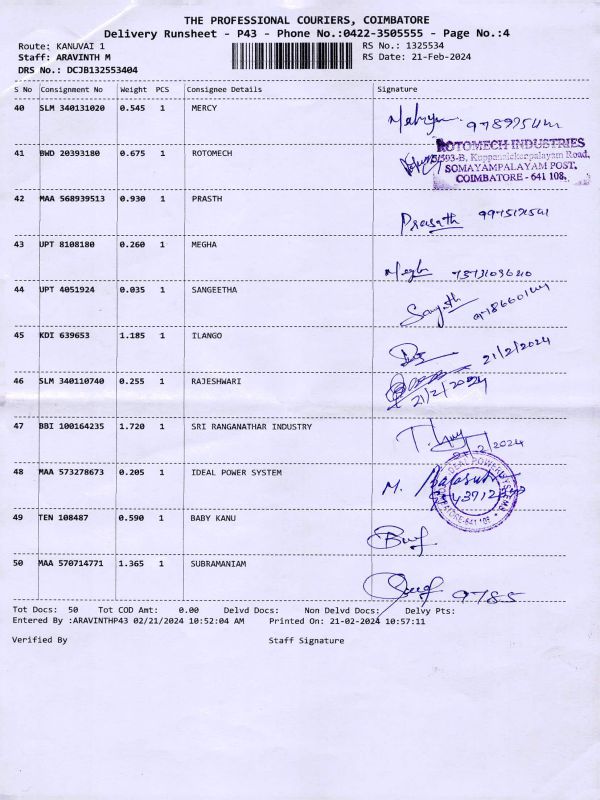 THE PROFESSIONAL COURIERS, COIMBATORE
Delivery Runsheet - P43 - Phone No.:0422-3505555 - Page No.:4
Route: KANUVAI 1 RS No.: 1325534
Staff: ARAVINTH M RS Date: 21-Feb-2024
DRS No.: DCJB132553404
S No Consignment No Weight PCS Consignee Details Signature
40 SLM 340131020 0.545 1 MERCY
41 BWD 20393180 0.675 1 ROTOMECH
ROTOMECH INDUSTRIES
Kuppanaickenpalayam Road,
SOMAYAMPALAYAM POST,
COIMBATORE - 641 108.
42 MAA 568939513 0.930 1 PRASTH
Prasath
43 UPT 8108180 0.260 1 MEGHA
44 UPT 4051924 0.035 1 SANGEETHA
45 KDI 639653 1.185 1 ILANGO
21/2/2024
46 SLM 340110740 0.255 1 RAJESHWARI
21/2/2024
47 BBI 100164235 1.720 1 SRI RANGANATHAR INDUSTRY
48 MAA 573278673 0.205 1 IDEAL POWER SYSTEM
M.
49 TEN 108487 0.590 1 BABY KANU
50 MAA 570714771 1.365 1 SUBRAMANIAM
9785
Tot Docs: 50 Tot COD Amt: 0.00 Delvd Docs: Non Delvd Docs: Delvy Pts:
Entered By :ARAVINTHP43 02/21/2024 10:52:04 AM Printed On: 21-02-2024 10:57:11
Verified By Staff Signature